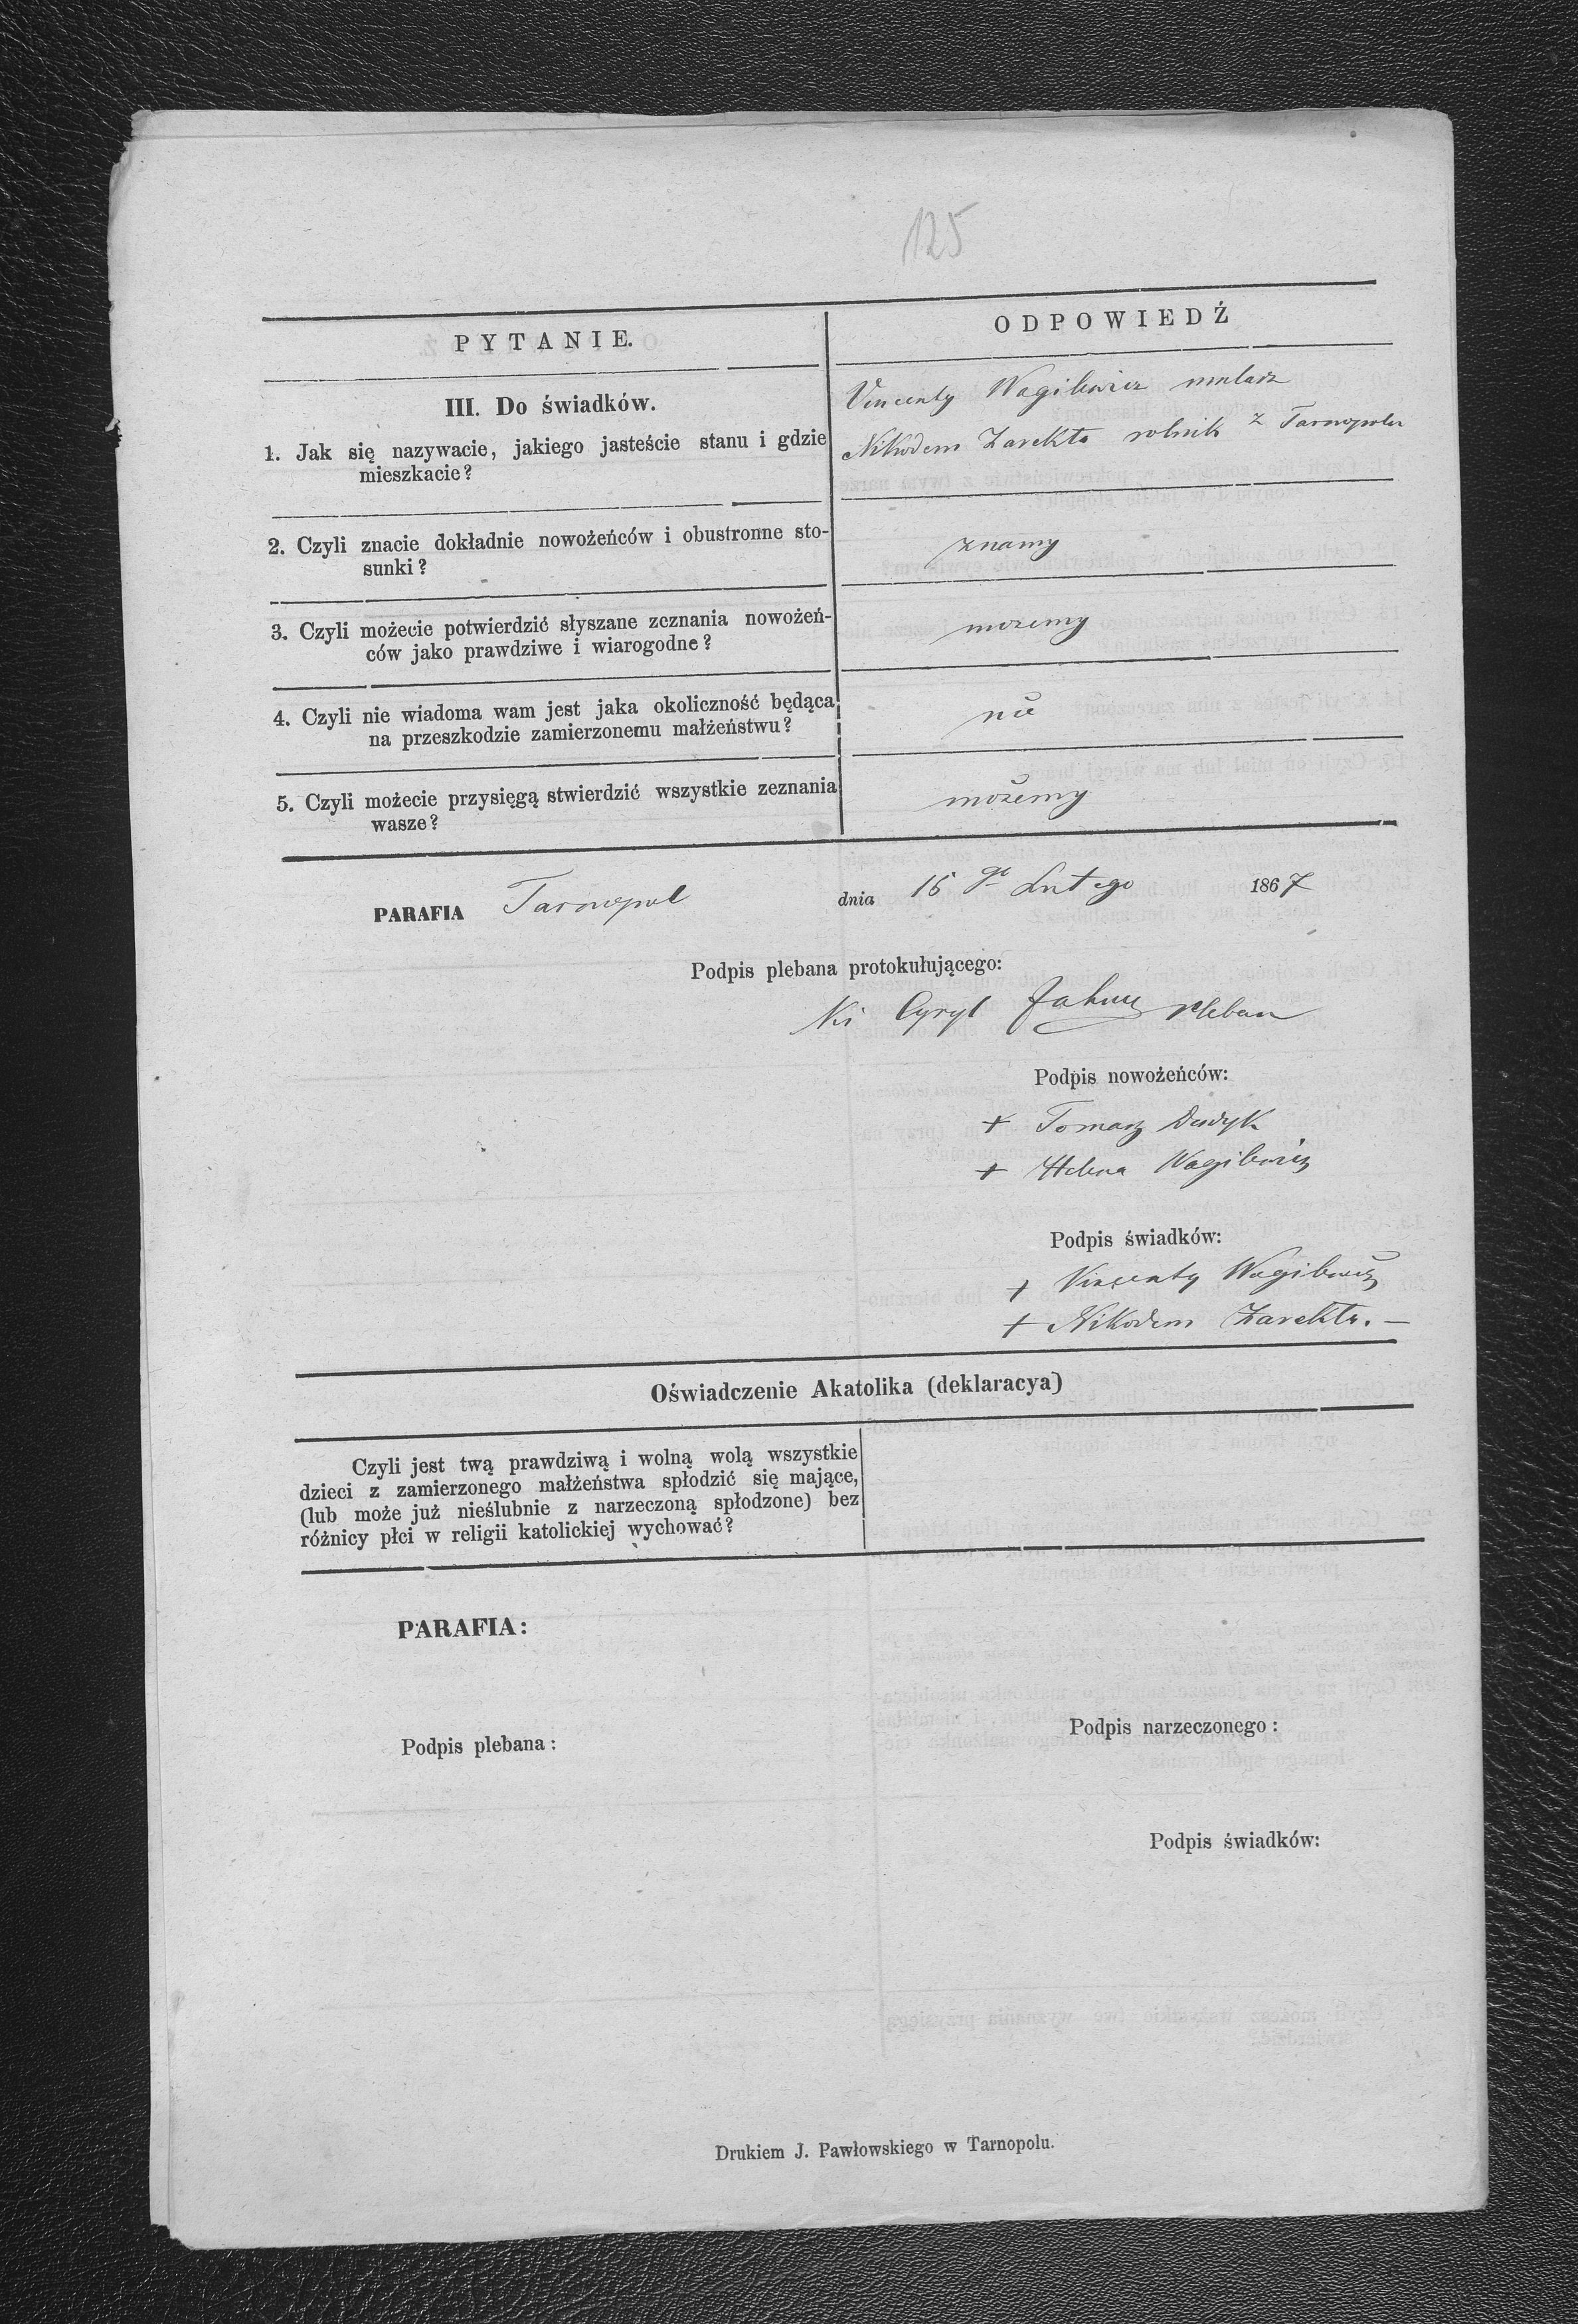 125
PYTANIE.
ODPOWIEDŹ
III. Do świadków.
1. Jak się nazywacie, jakiego jasteście stanu i gdzie
mieszkacie?
Vincenty Wagilewicz mularz
Nikodem Zarekta rolnik z Tarnopola
2. Czyli znacie dokładnie nowożeńców i obustronne sto-
sunki?
znamy
3. Czyli możecie potwierdzić słyszane zeznania nowożeń-
ców jako prawdziwe i wiarogodne?
mozemy
4. Czyli nie wiadoma wam jest jaka okoliczność będąca
na przeszkodzie zamierzonemu małżeństwu?
nie
5. Czyli możecie przysięgą stwierdzić wszystkie zeznania
wasze?
możemy
PARAFIA Tarnopol dnia 16 go Lutego 1867
Podpis plebana protokułującego:
Cyryl pleban
Podpis nowożeńców:
+ Tomasz Dudyk
+ Helena Wagilewicz
Podpis świadków:
+ Vincenty Wagilewicz
+ Nikodem Zarekta. —
Oświadczenie Akatolika (deklaracya)
Czyli jest twą prawdziwą i wolną wolą wszystkie
dzieci z zamierzonego małżeństwa spłodzić się mające,
(lub może już nieślubnie z narzeczoną spłodzone) bez
różnicy płci w religii katolickiej wychować?
PARAFIA:
Podpis plebana:
Podpis narzeczonego:
Podpis świadków:
Drukiem J. Pawłowskiego w Tarnopolu.